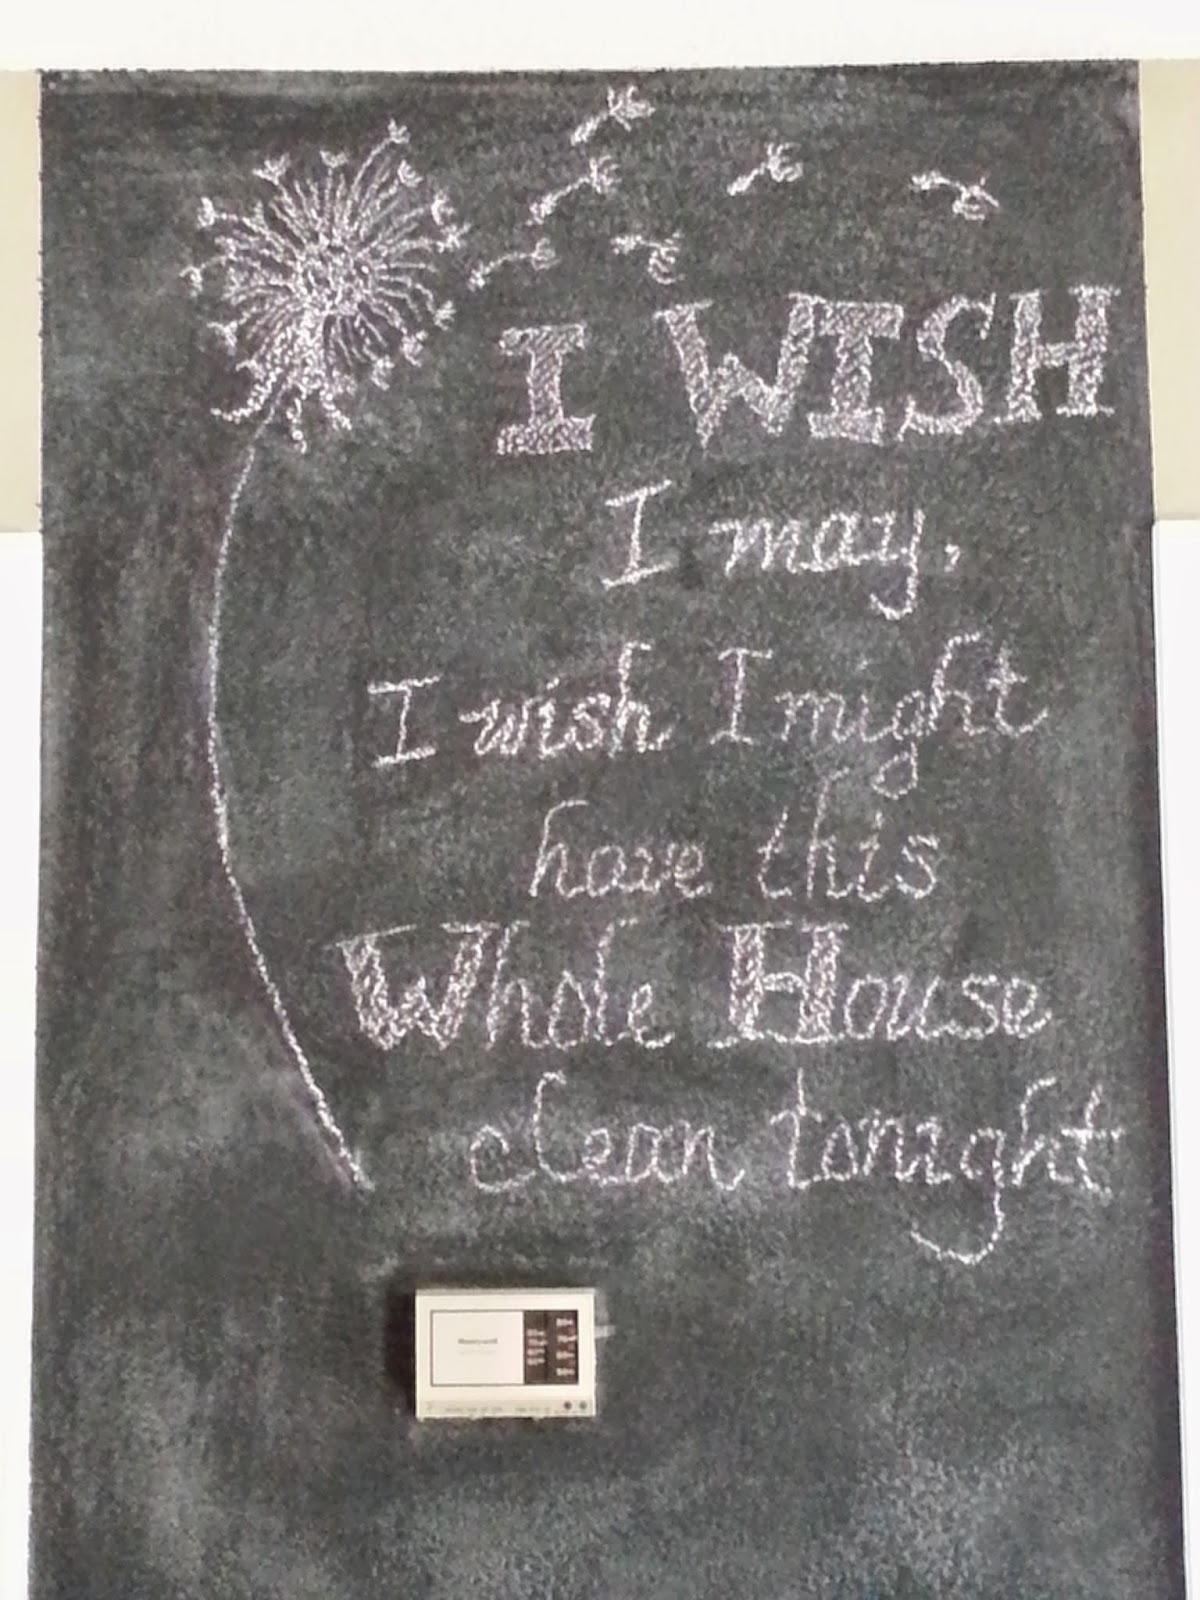 I WISH
I may,
I wish I might
have this
Whole House
clean tonight
Honeywell